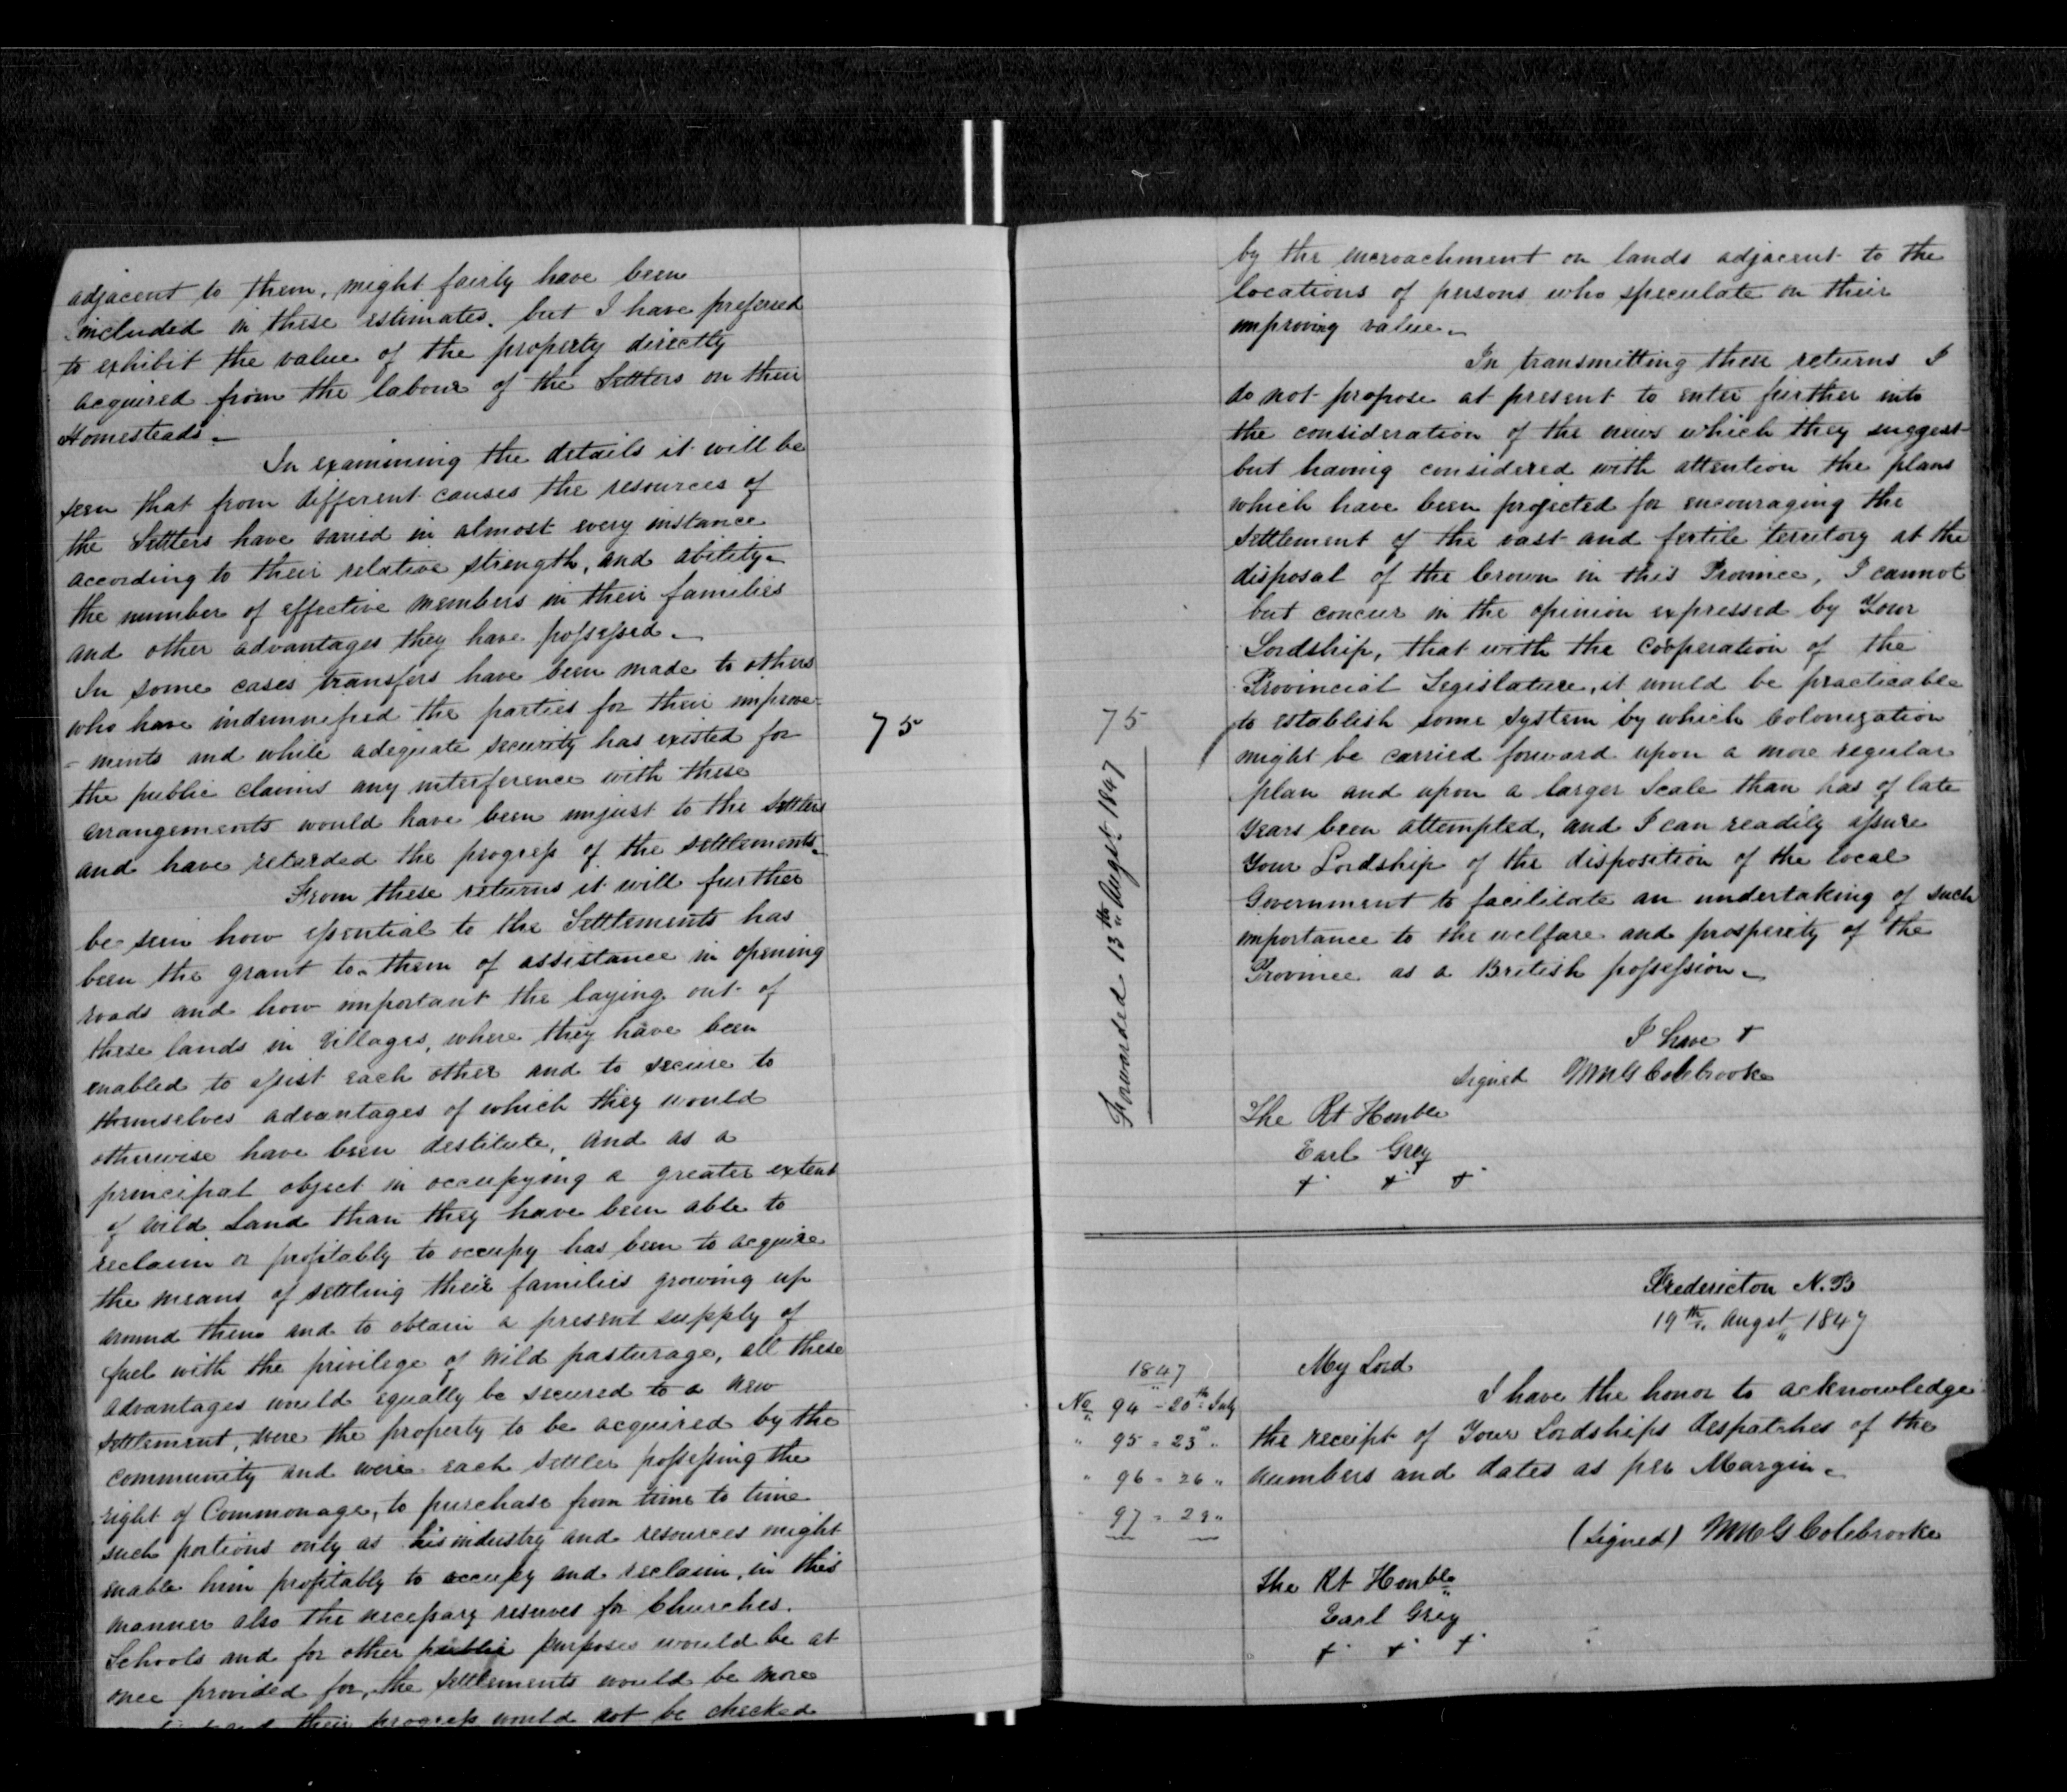 adjacent to them, might fairly have been
included in these estimates, but I have prefered
to exhibit the value of the property directly
acquired from the labour of the Settlers on their
Homesteads.
In examining the details it will be
seen that from different causes the resources of
the Settlers have varied in almost every instance
according to their relative strength, and ability
the number of effective members in their families
and other advantages they have possessed.
In some cases transfers have been made to others
who have indemnified the parties for their improve-
-ments and while adequate security has existed for
the public claims any interference with these
arrangements would have been unjust to the Settlers
and have retarded the progress of the settlements.
From these returns it will further
be seen how essential to the Settlements has
been the grant to them of assistance in opening
roads and how important the laying out of
these lands in Villages, where they have been
enabled to assist each other and to secure to
themselves advantages of which they would
otherwise have been destitute, and as a
principal object in occupying a greater extent
of wild Land than they have been able to
reclaim or profitably to occupy has been to acquire
the means of settling their families growing up
around them and to obtain a present supply of
fuel with the privilege of wild pasturage, all these
advantages would equally be secured to a new
settlement, were the property to be acquired by the
community and were each settler possessing the
right of Commonage, to purchase from time to time
such portions only as his industry and resources might
enable him profitably to occupy and reclaim, in this
manner also the necessary reserves for Churches.
Schools and for other public purposes would be at
once provided for, the settlements would be more
their progress would not be checked
75
by the incroachment on lands adjacent to the
locations of persons who speculate on their
improving value.
In transmitting these returns I
do not propose at present to enter further into
the consideration of the views which they suggest
but having considered with attention the plans
which have been projected for encouraging the
settlement of the vast and fertile territory at the
disposal of the Crown in this Province, I cannot
but concur in the opinion expressed by Your
Lordship, that with the cooperation of the
Provincial Legislature, it would be practicable
to establish some system by which Colonization
might be carried forward upon a more regular
plan and upon a larger Scale than has of late
years been attempted, and I can readily assure
Your Lordship of the disposition of the local
Government to facilitate an undertaking of such
importance to the welfare and prosperity of the
Province as a British possession.
75
Forwarded 13th Augst 1847
I have +
signed WmG Colebrooke
The Rt Honble
Earl Grey
+ + +
Fredericton N.B
19th Augst 1847
My Lord
I have the honor to acknowledge
the receipt of Your Lordships despatches of the
numbers and dates as per Margin.
1847
No 94 - 20th July
" 95 - 23 "
" 96 - 26 "
" 97 - 29 "
(Signed) WmG Colebrooke
The Rt Honble
Earl Grey
+ + +